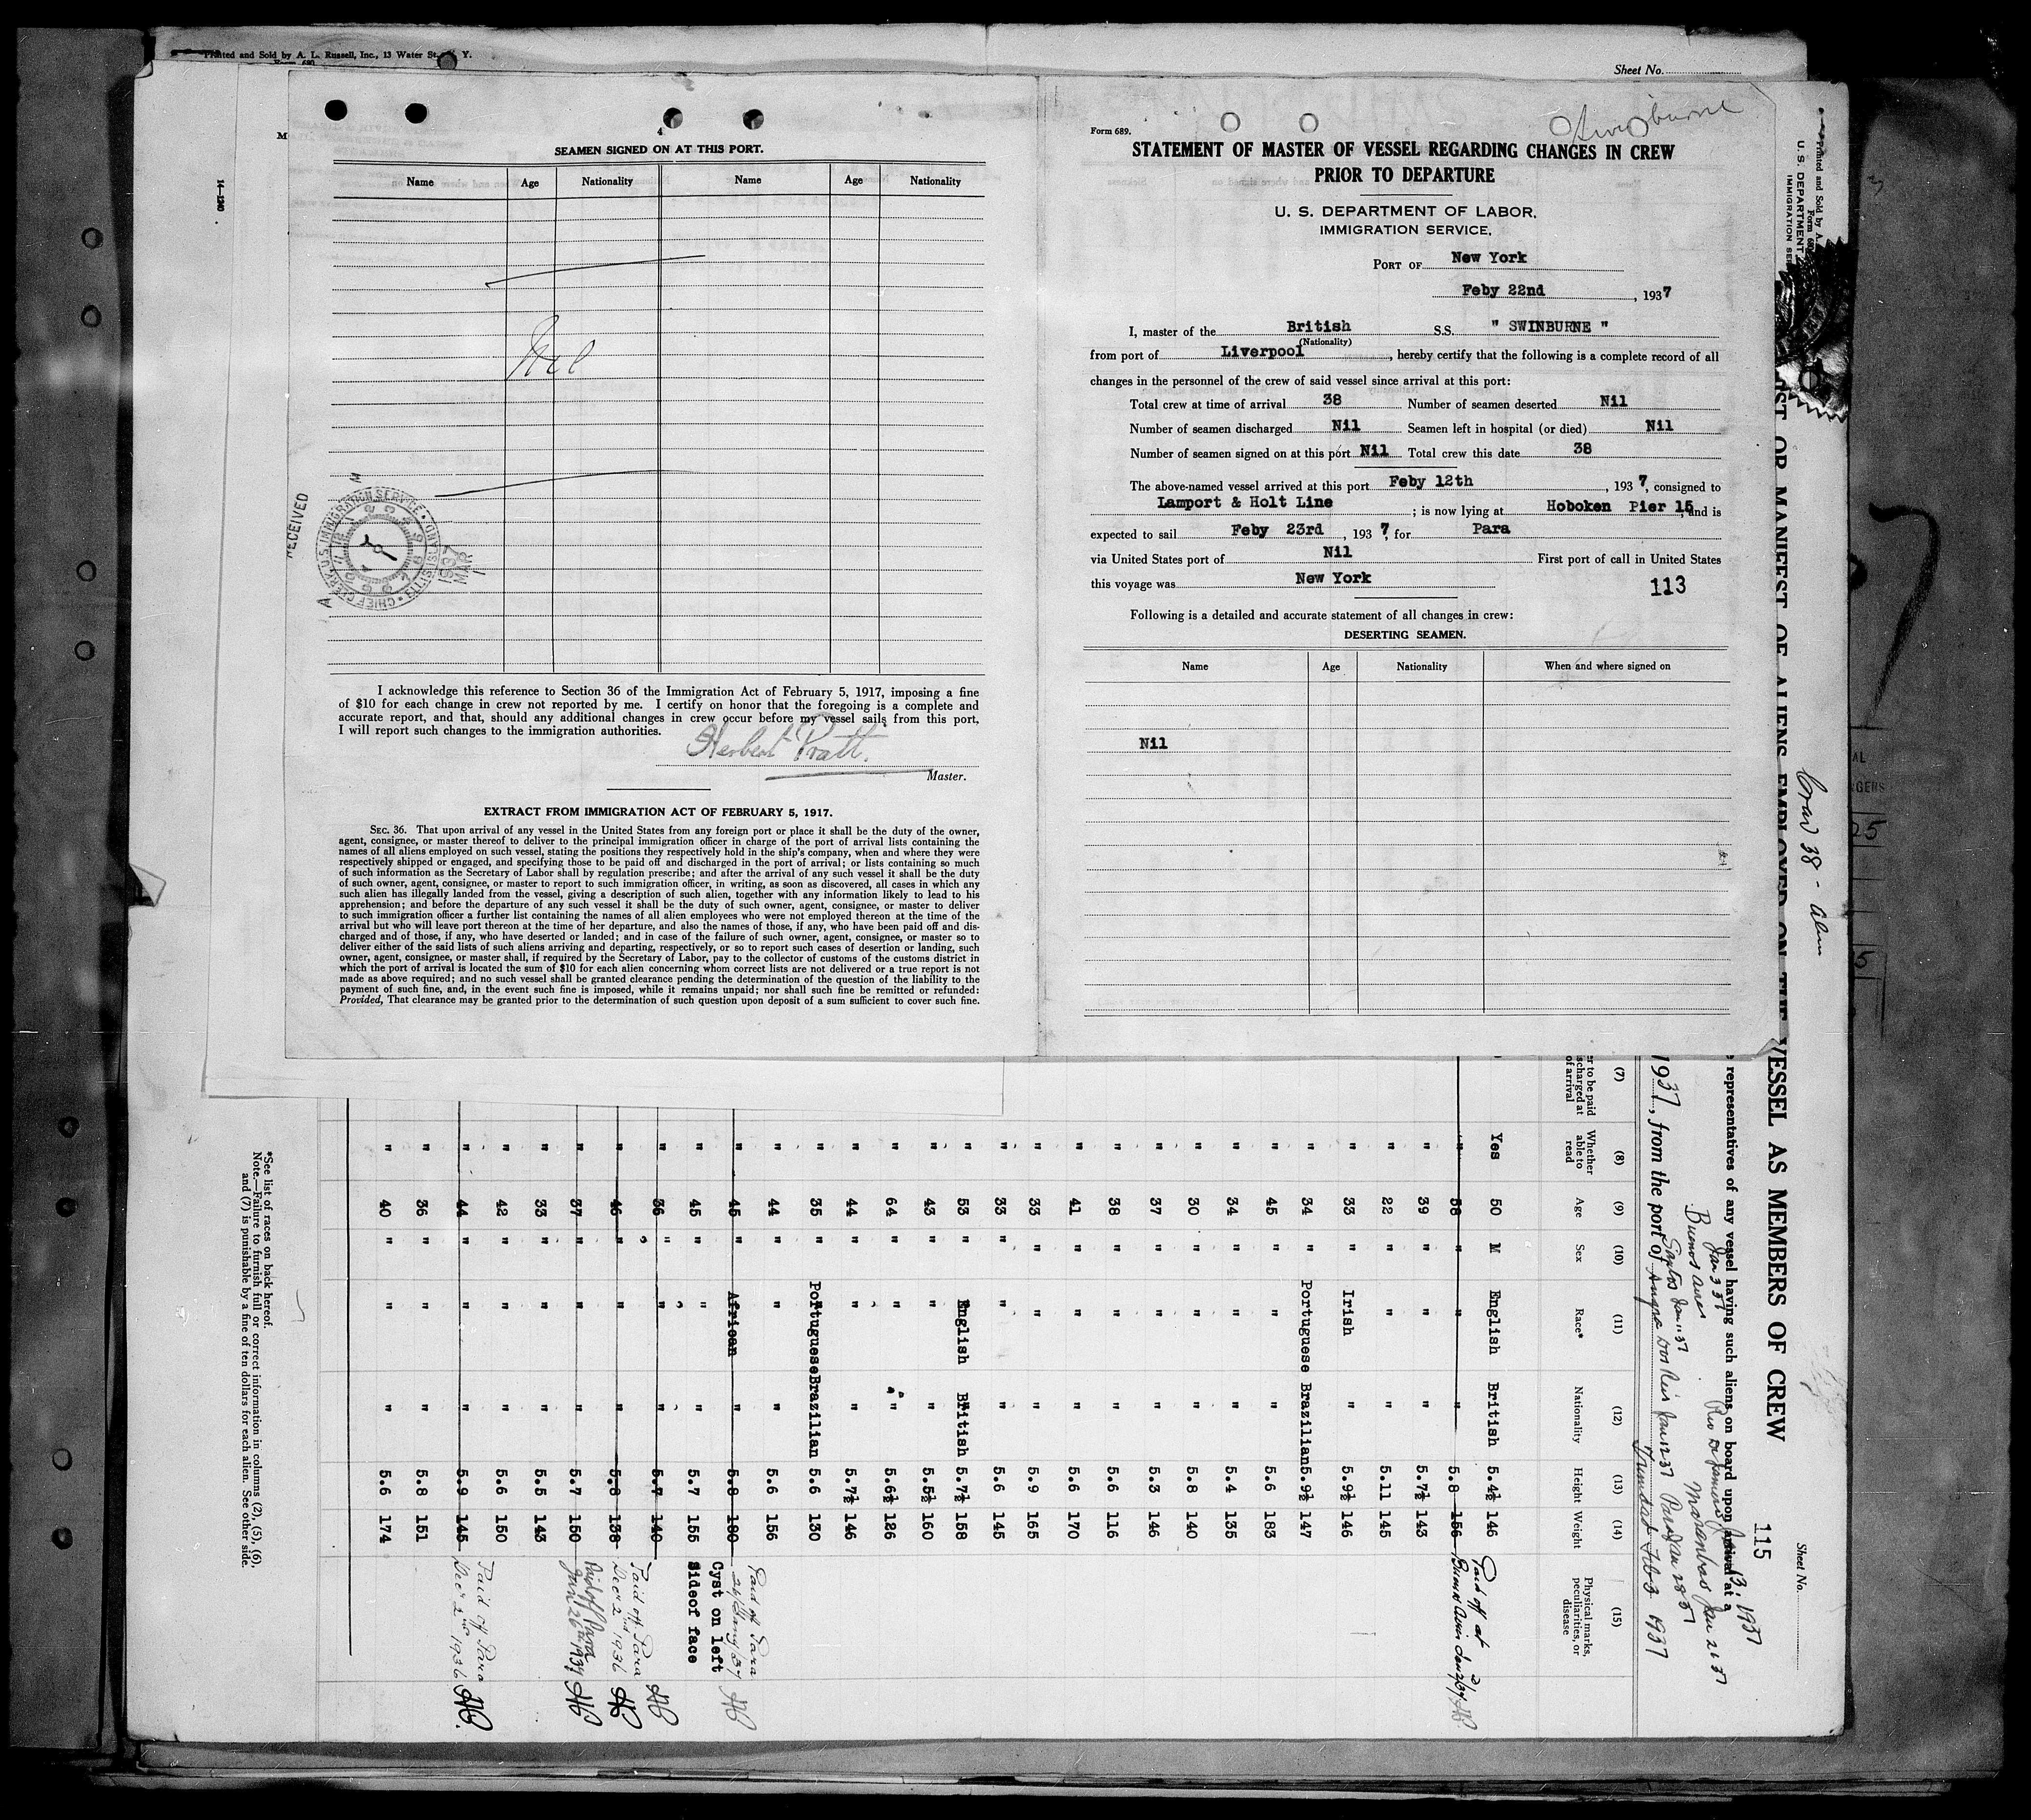 Printed and Sold by A. L. Russell, Inc., 13 Water St. N. Y.
Form 680
Sheet No.
14—1240
4
SEAMEN SIGNED ON AT THIS PORT.
Name Age Nationality Name Age Nationality
Nil
RECEIVED
CHIEF CLERK U.S. IMMIGRATION SERVICE
1937 MAR 1
I acknowledge this reference to Section 36 of the Immigration Act of February 5, 1917, imposing a fine
of $10 for each change in crew not reported by me. I certify on honor that the foregoing is a complete and
accurate report, and that, should any additional changes in crew occur before my vessel sails from this port,
I will report such changes to the immigration authorities.
Herbert Pratt.
Master.
EXTRACT FROM IMMIGRATION ACT OF FEBRUARY 5, 1917.
SEC. 36. That upon arrival of any vessel in the United States from any foreign port or place it shall be the duty of the owner,
agent, consignee, or master thereof to deliver to the principal immigration officer in charge of the port of arrival lists containing the
names of all aliens employed on such vessel, stating the positions they respectively hold in the ship's company, when and where they were
respectively shipped or engaged, and specifying those to be paid off and discharged in the port of arrival; or lists containing so much
of such information as the Secretary of Labor shall by regulation prescribe; and after the arrival of any such vessel it shall be the duty
of such owner, agent, consignee, or master to report to such immigration officer, in writing, as soon as discovered, all cases in which any
such alien has illegally landed from the vessel, giving a description of such alien, together with any information likely to lead to his
apprehension; and before the departure of any such vessel it shall be the duty of such owner, agent, consignee, or master to deliver
to such immigration officer a further list containing the names of all alien employees who were not employed thereon at the time of the
arrival but who will leave port thereon at the time of her departure, and also the names of those, if any, who have been paid off and dis-
charged and of those, if any, who have deserted or landed; and in case of the failure of such owner, agent, consignee, or master so to
deliver either of the said lists of such aliens arriving and departing, respectively, or so to report such cases of desertion or landing, such
owner, agent, consignee, or master shall, if required by the Secretary of Labor, pay to the collector of customs of the customs district in
which the port of arrival is located the sum of $10 for each alien concerning whom correct lists are not delivered or a true report is not
made as above required; and no such vessel shall be granted clearance pending the determination of the question of the liability to the
payment of such fine, and, in the event such fine is imposed, while it remains unpaid; nor shall such fine be remitted or refunded:
Provided, That clearance may be granted prior to the determination of such question upon deposit of a sum sufficient to cover such fine.
Swinburne
Form 689.
STATEMENT OF MASTER OF VESSEL REGARDING CHANGES IN CREW
PRIOR TO DEPARTURE
U. S. DEPARTMENT OF LABOR,
IMMIGRATION SERVICE,
PORT OF New York
Feby 22nd, 1937
I, master of the British S.S. " SWINBURNE "
(Nationality)
from port of Liverpool, hereby certify that the following is a complete record of all
changes in the personnel of the crew of said vessel since arrival at this port:
Total crew at time of arrival 38 Number of seamen deserted Nil
Number of seamen discharged Nil Seamen left in hospital (or died) Nil
Number of seamen signed on at this port Nil Total crew this date 38
The above-named vessel arrived at this port Feby 12th, 1937, consigned to
Lamport & Holt Line; is now lying at Hoboken Pier 15, and is
expected to sail Feby 23rd, 1937, for Para
via United States port of Nil First port of call in United States
this voyage was New York
113
Following is a detailed and accurate statement of all changes in crew:
DESERTING SEAMEN.
Name Age Nationality When and where signed on
Nil
Printed and Sold by A.
Form 680
U. S. DEPARTMENT
IMMIGRATION SER
Crew 38 -
Sheet No.
115
LIST OR MANIFEST OF ALIENS EMPLOYED ON THE VESSEL AS MEMBERS OF CREW
representatives of any vessel having such aliens on board upon arrival at a
13, 1937
Jan 3 37 Rio De Janeiro
Buenos Aires Maranhao Jan 21 37
Santos Jan 11 37
1937, from the port of Angra Dos Reis Jan 12 37 Para Jan 28 37
Trinidad Feb 3 1937
(7) (8) (9) (10) (11) (12) (13) (14) (15)
er to be paid scharged at of arrival
Whether able to read
Age
Sex
Race*
Nationality
Height
Weight
Physical marks, peculiarities, or disease
Yes 50 M English British 5.4½ 146
" 58 " " " 5.8 156 Paid off at Buenos Aires
" 39 " " " 5.7½ 143
" 22 " " " 5.11 145
" 33 " Irish " 5.9½ 146
" 34 " Portuguese Brazilian 5.9½ 147
" 45 " " " 5.6 183
" 34 " " " 5.4 135
" 30 " " " 5.8 140
" 37 " " " 5.3 146
" 38 " " " 5.6 116
" 41 " " " 5.6 170
" 33 " " " 5.9 165
" 33 " " " 5.6 145
" 53 " English British 5.7½ 158
" 43 " " " 5.5½ 160
" 64 " " " 5.6½ 126
" 44 " " " 5.7½ 146
" 35 " Portuguese Brazilian 5.6 130
" 44 " " " 5.6 156
" 45 " African " 5.8 180 Paid of Para
" 45 " " " 5.7 155 Cyst on left Sideof face
" 36 " " " 5.7 140 Paid off Para
" 46 " " " 5.8 138 Decr 2nd 1936
" 37 " " " 5.7 150 Paid off Para Jan 26th 1937
" 33 " " " 5.5 143
" 42 " " " 5.6 150
" 44 " " " 5.9 145 Paid of Para Decr 2nd 1936
" 36 " " " 5.8 151
" 40 " " " 5.6 174
*See list of races on back hereof.
Note.—Failure to furnish full or correct information in columns (2), (5), (6),
and (7) is punishable by a fine of ten dollars for each alien. See other side.